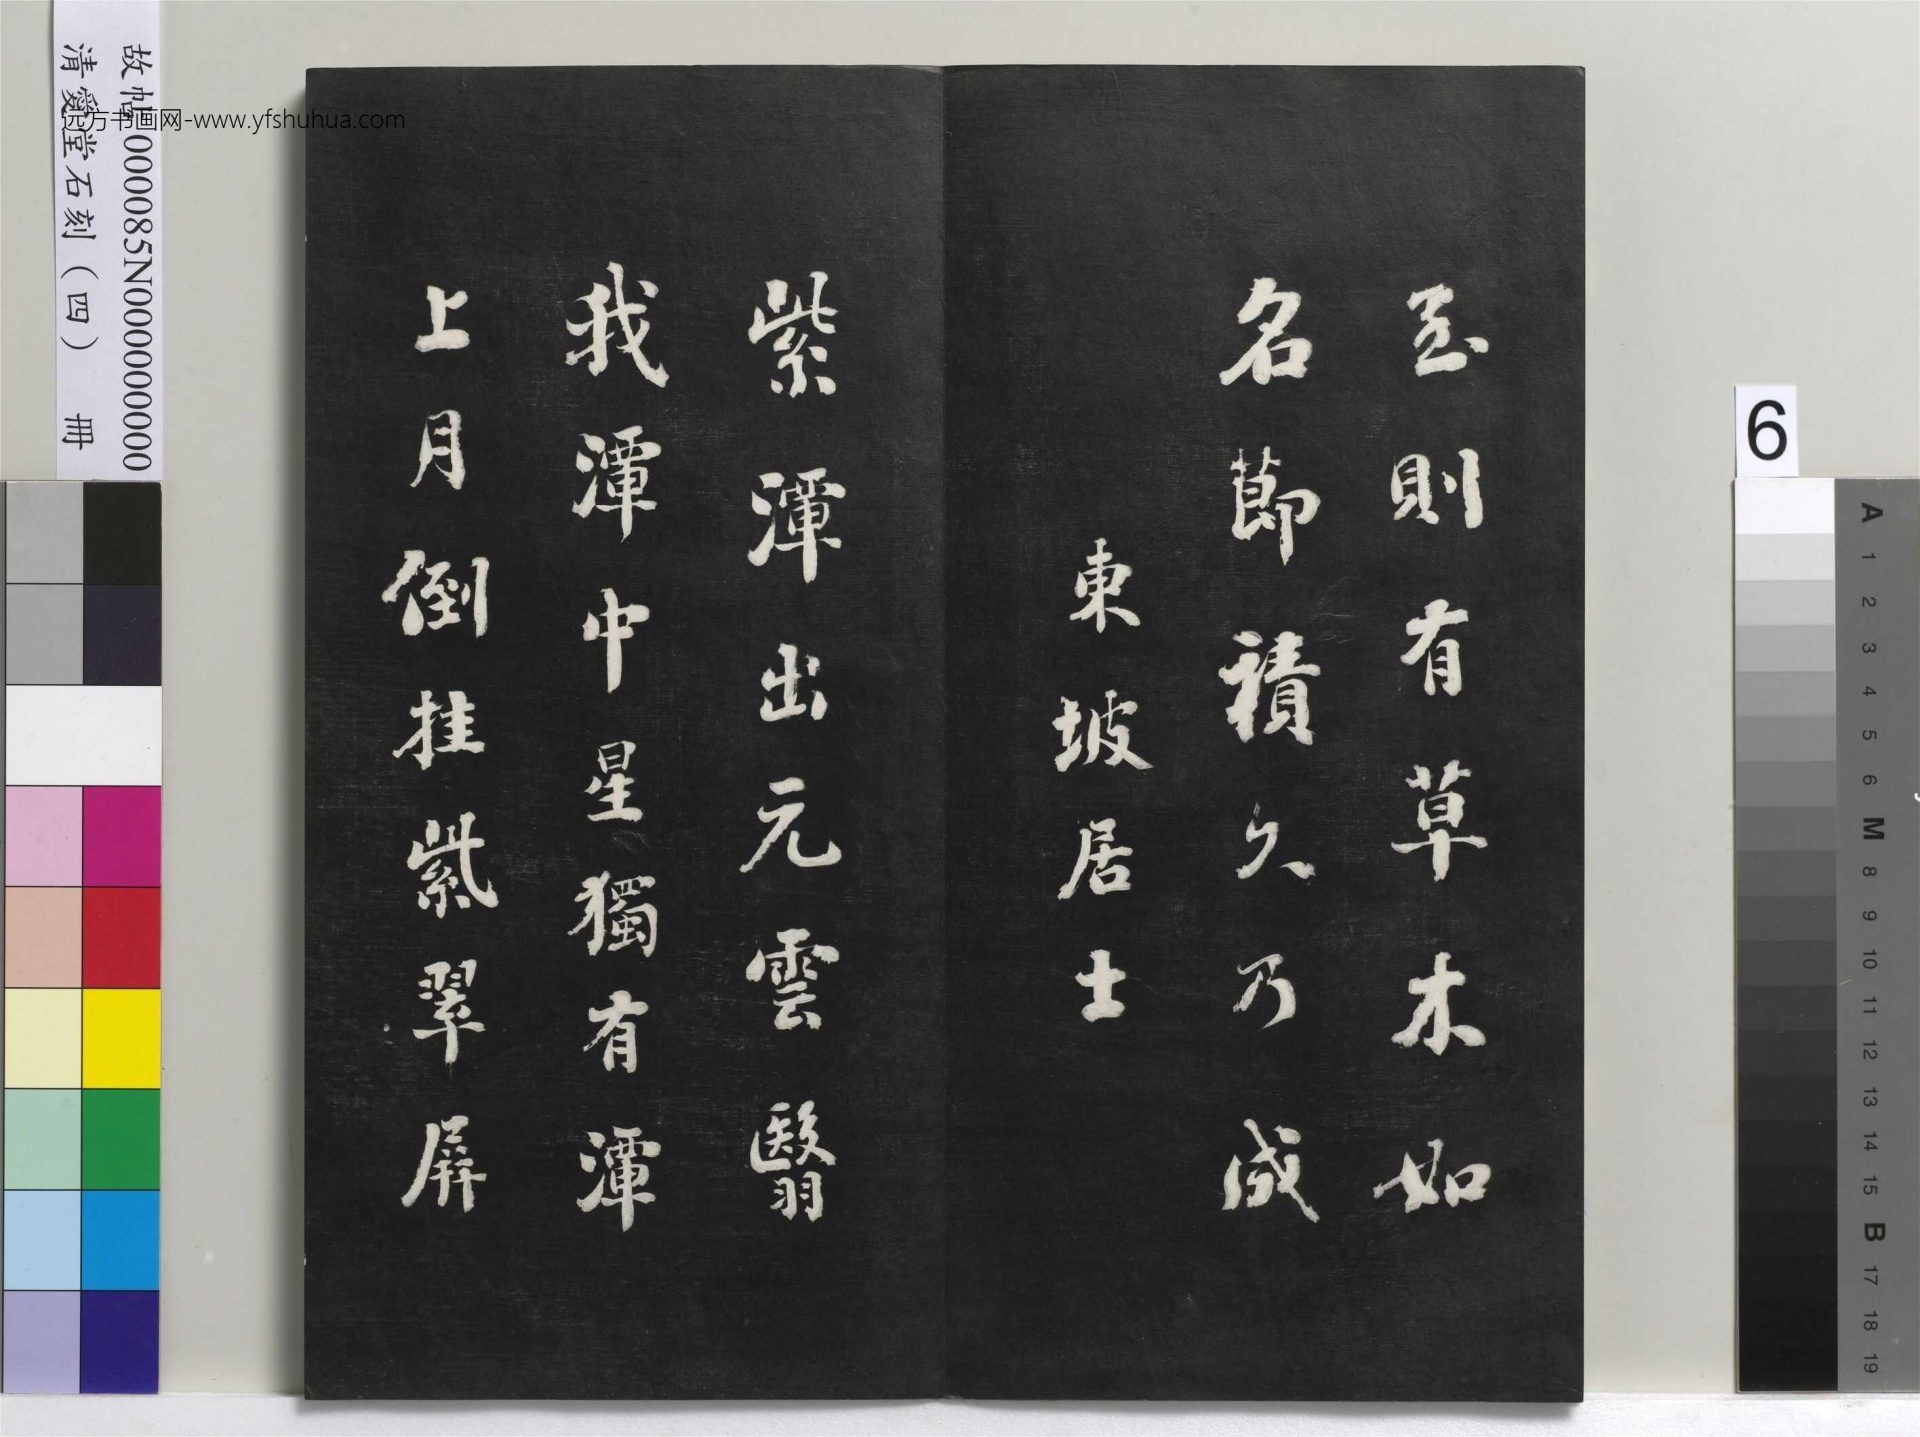 至則有草木如
名節積久乃成
東坡居士
紫潭出元雲翳
我潭中星獨有潭
上月倒挂紫翠屏
故帖000085N000000000
清愛堂石刻（四） 冊
远方书画网-www.yfshuhua.com
6
A
1
2
3
4
5
6
M
8
9
10
11
12
13
14
15
B
17
18
19